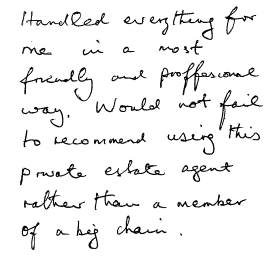 Handled everything for
me in a most
friendly and proffesional
way. Would not fail
to recommend using this
private estate agent
rather than a member
of a big chain.